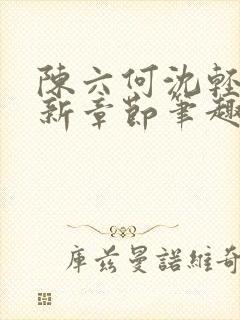 陳六何沈輕
新章節筆趣
庫茲曼諾維奇